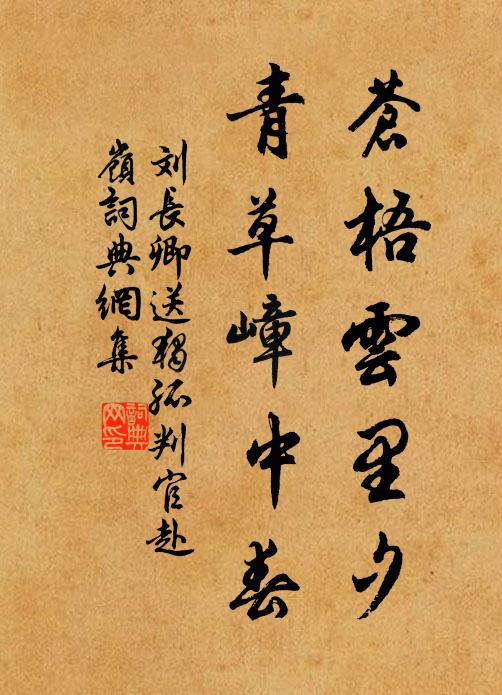 蒼梧雲里夕
青草嶂中春
刘長卿送獨孤判官赴
嶺詞典網集
詞典
网印